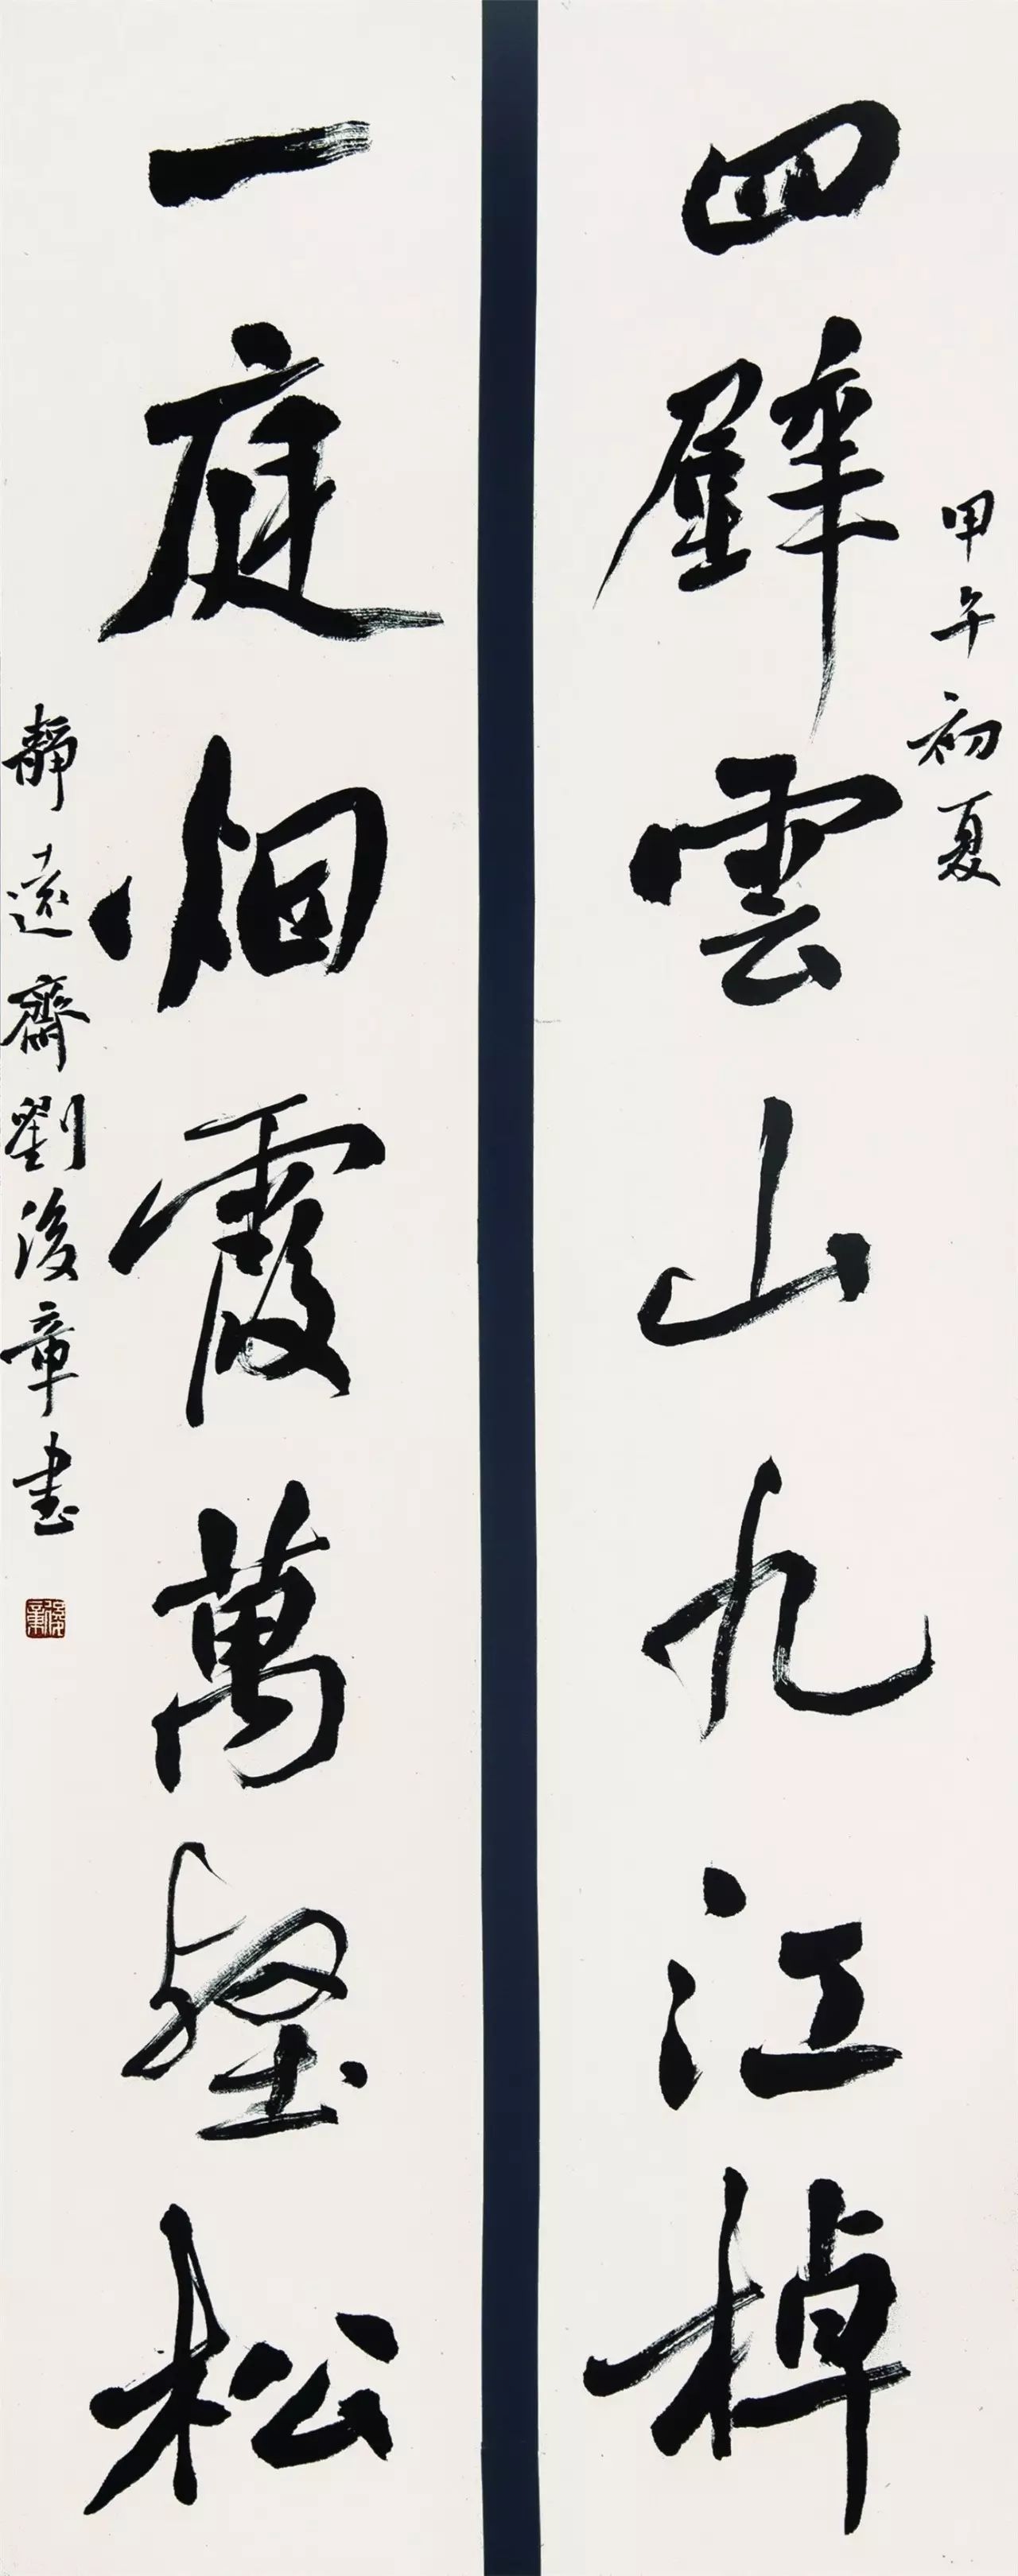 甲午初夏
四壁雲山九江棹
一庭烟霞萬壑松
靜遠齋劉後章書